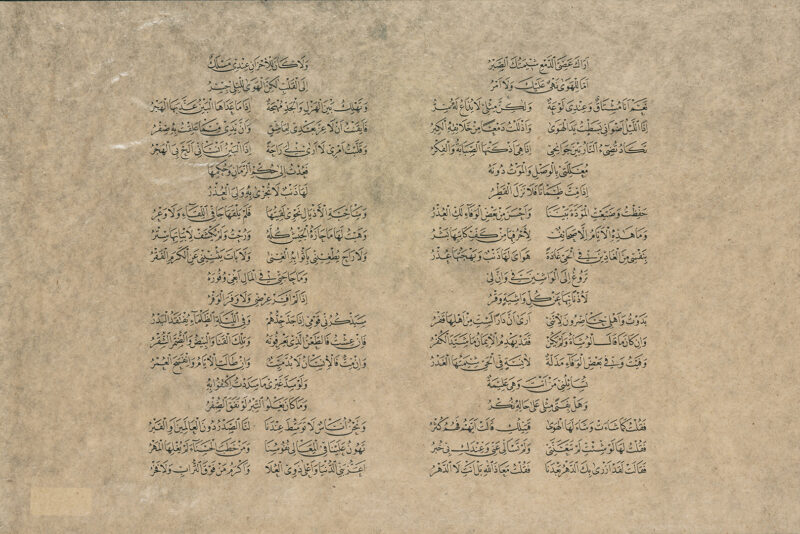 أراك عصي الدمع شيمتك الصبر
أما للهوى نهي عليك ولا أمر
نعم أنا مشتاق وعندي لوعة ولكن مثلي لا يذاع له سر
إذا الليل أضواني بسطت يد الهوى وأذللت دمعا من خلائقه الكبر
تكاد تضيء النار بين جوانحي إذا هي أذكتها الصبابة والفكر
معللتي بالوصل والموت دونه
إذا مت ظمآنا فلا نزل القطر
حفظت وضيعت المودة بيننا وأحسن من بعض الوفاء لك العذر
وما هذه الأيام إلا صحائف لأحرفها من كف كاتبها بشر
بنفسي من الغادين في الحي غادة هواي لها ذنب وبهجتها عذر
تروغ إلى الواشين في وإن لي
لأذنا بها عن كل واشية وقر
بدوت وأهلي حاضرون لأنني أرى أن دارا لست من أهلها قفر
وإن كان ما قال الوشاة ولم يكن فقد يهدم الإيمان ما شيد الكفر
وفيت وفي بعض الوفاء مذلة لآنسة في الحي شيمتها الغدر
تسائلني من أنت وهي عليمة
وهل بفتى مثلي على حاله نكر
فقلت كما شاءت وشاء لها الهوى قتيلك قالت أيهم فهم كثر
فقلت لها لو شئت لم تتعنتي ولم تسألي عني وعندك بي خبر
فقالت لقد أزرى بك الدهر بعدنا فقلت معاذ الله بل أنت لا الدهر
ولا كان للأحزان عندي مسلك
إلى القلب لكن الهوى للبلى جسر
وتهلك بين الهزل والجد مهجة إذا ما عداها البين عذبها الهجر
فأيقنت أن لا عز بعدي لعاشق وأن يدي مما علقت به صفر
وقلبت أمري لا أرى لي راحة إذا البين أنساني ألح بي الهجر
فعدت إلى حكم الزمان وحكمها
لها ذنب لا تجزى به ولي العذر
وساحبة الأذيال نحوي لقيتها فلم يلقها جافي اللقاء ولا وعر
وهبت لها ما حازه الجيش كله ورحت ولم يكشف لأبياتها ستر
ولا راح يطغيني بأثوابه الغنى ولا بات يثنيني عن الكرم الفقر
وما حاجتي في المال أبغي وفوره
إذا لم أفر عرضي ولا وفر الوفر
سيذكرني قومي إذا جد جدهم وفي الليلة الظلماء يفتقد البدر
فإن عشت فالطعن الذي يعرفونه وتلك القنا والبيض والضمر الشقر
وإن مت فالإنسان لا بد ميت وإن طالت الأيام وانفسح العمر
ولو سد غيري ما سددت اكتفوا به
وما كان يغلو التبر لو نفق الصفر
ونحن أناس لا توسط عندنا لنا الصدر دون العالمين أو القبر
تهون علينا في المعالي نفوسنا ومن خطب الحسناء لم يغلها المهر
أعز بني الدنيا وأعلى ذوي العلا وأكرم من فوق التراب ولا فخر